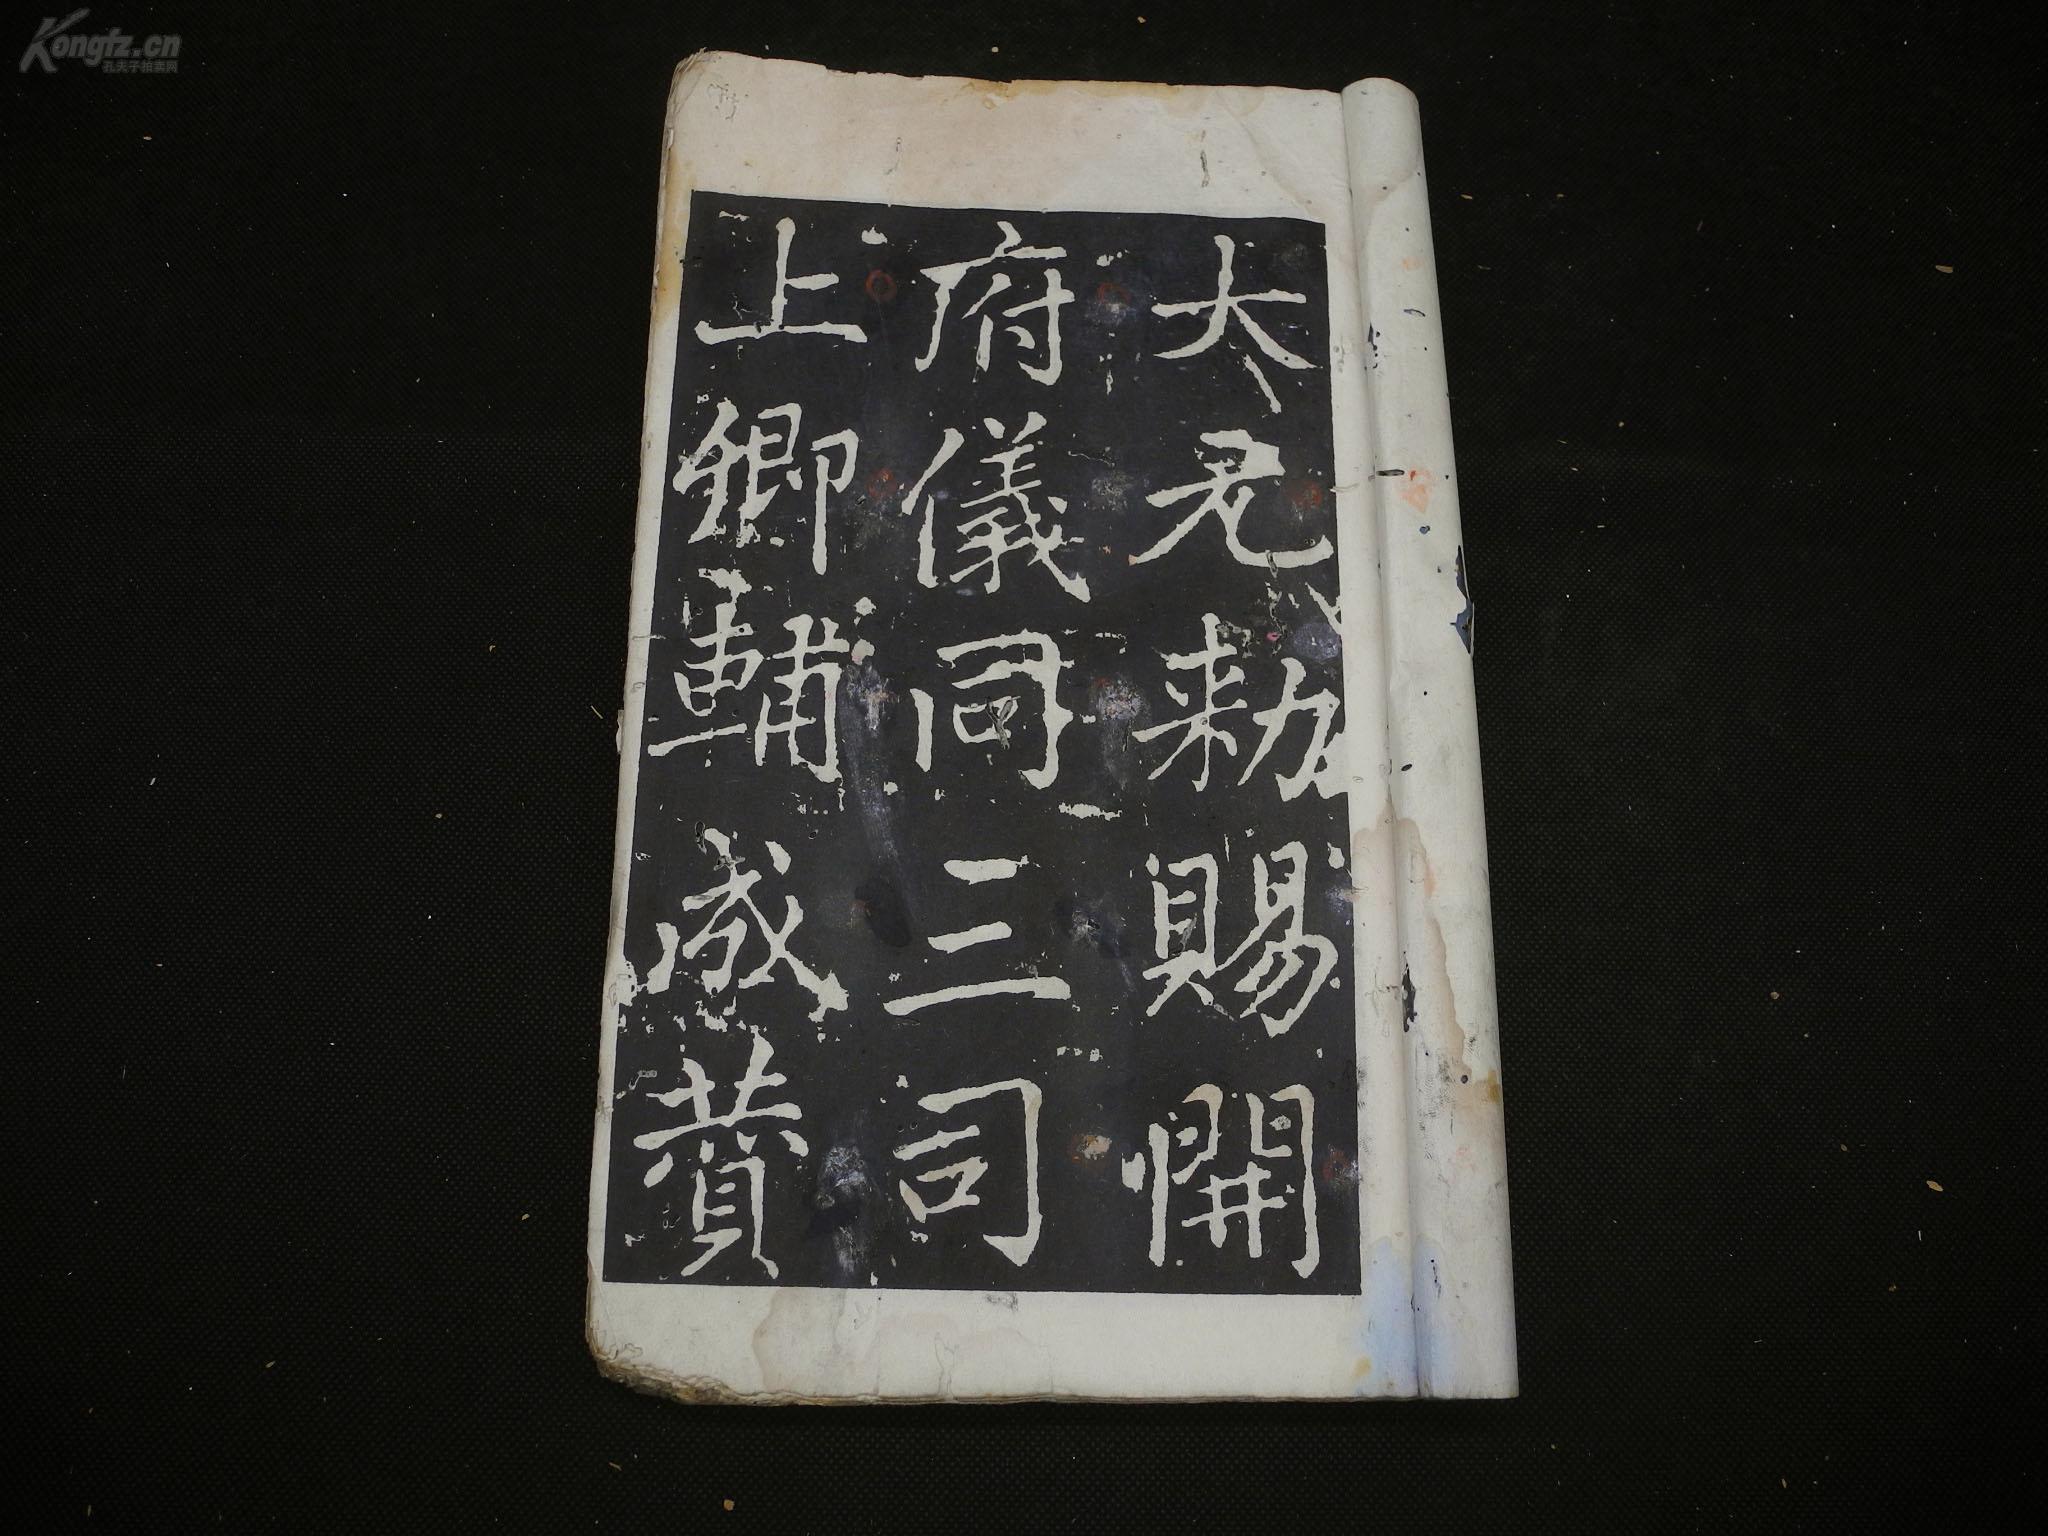 Kongfz.cn
孔夫子拍卖网
大元勑賜開
府儀同三司
上卿輔成贊